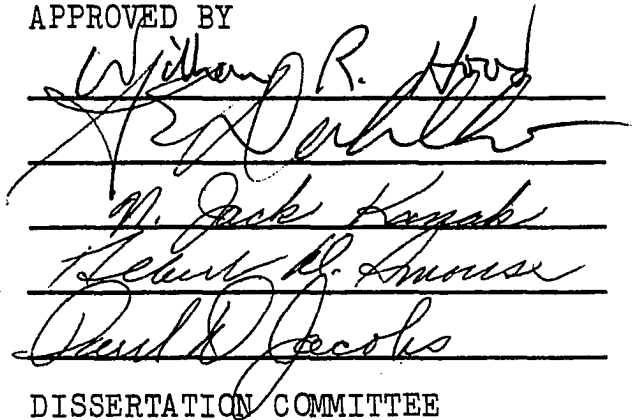 APPROVED BY
William R. Hood
N. Jack Kanak
D. Smouse
Paul D. Jacobs
DISSERTATION COMMITTEE